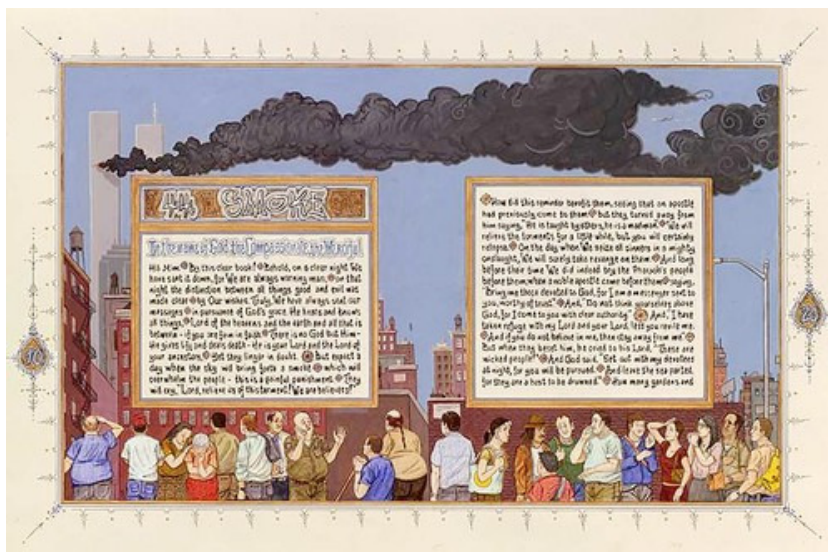 44
SMOKE
In the name of God, the Compassionate, the Merciful
Ha Mim. By this clear book! Behold, on a clear night We
have sent it down, for We are always warning man, on that
night the distinction between all things good and evil was
made clear by Our wishes. Truly, We have always sent our
messages in pursuance of God's grace. He hears and knows
all things, Lord of the heavens and the earth and all that is
between - if you are firm in faith. There is no God but Him -
He gives life and deals death - He is your Lord and the Lord of
your ancestors. Yet they linger in doubt. But expect a
day when the sky will bring forth a smoke which will
overwhelm the people - this is a painful punishment. They
will cry, "Lord, relieve us of this torment! We are believers!"
How did this reminder benefit them, seeing that an apostle
had previously come to them but they turned away from
him saying, "He is taught by others, he is a madman." We will
relieve the torments for a little while, but you will certainly
relapse. On the day when We seize all sinners in a mighty
onslaught, We will surely take revenge on them. And long
before their time We did indeed try the Pharaoh's people
before them, when a noble apostle came before them saying,
"Bring me those devoted to God, for I am a messenger sent to
you, worthy of trust" And, "Do not think yourselves above
God, for I come to you with clear authority" And, "I have
taken refuge with my Lord and your Lord, lest you revile me.
And if you do not believe in me, then stay away from me"
But when they beset him, he cried to his Lord, "These are
wicked people!" And God said, "Set out with my devotees
at night, for you will be pursued. And leave the sea parted
for they are a host to be drowned." How many gardens and